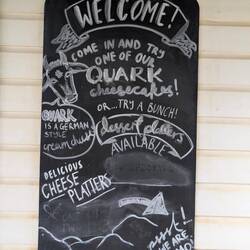 WELCOME!
COME IN AND TRY
ONE OF OUR
QUARK
cheesecakes!
OR... TRY A BUNCH!
QUARK
IS A GERMAN
STYLE
cream cheese
dessert platters
AVAILABLE
DELICIOUS
CHEESE
PLATTERS
psst!
WE ARE